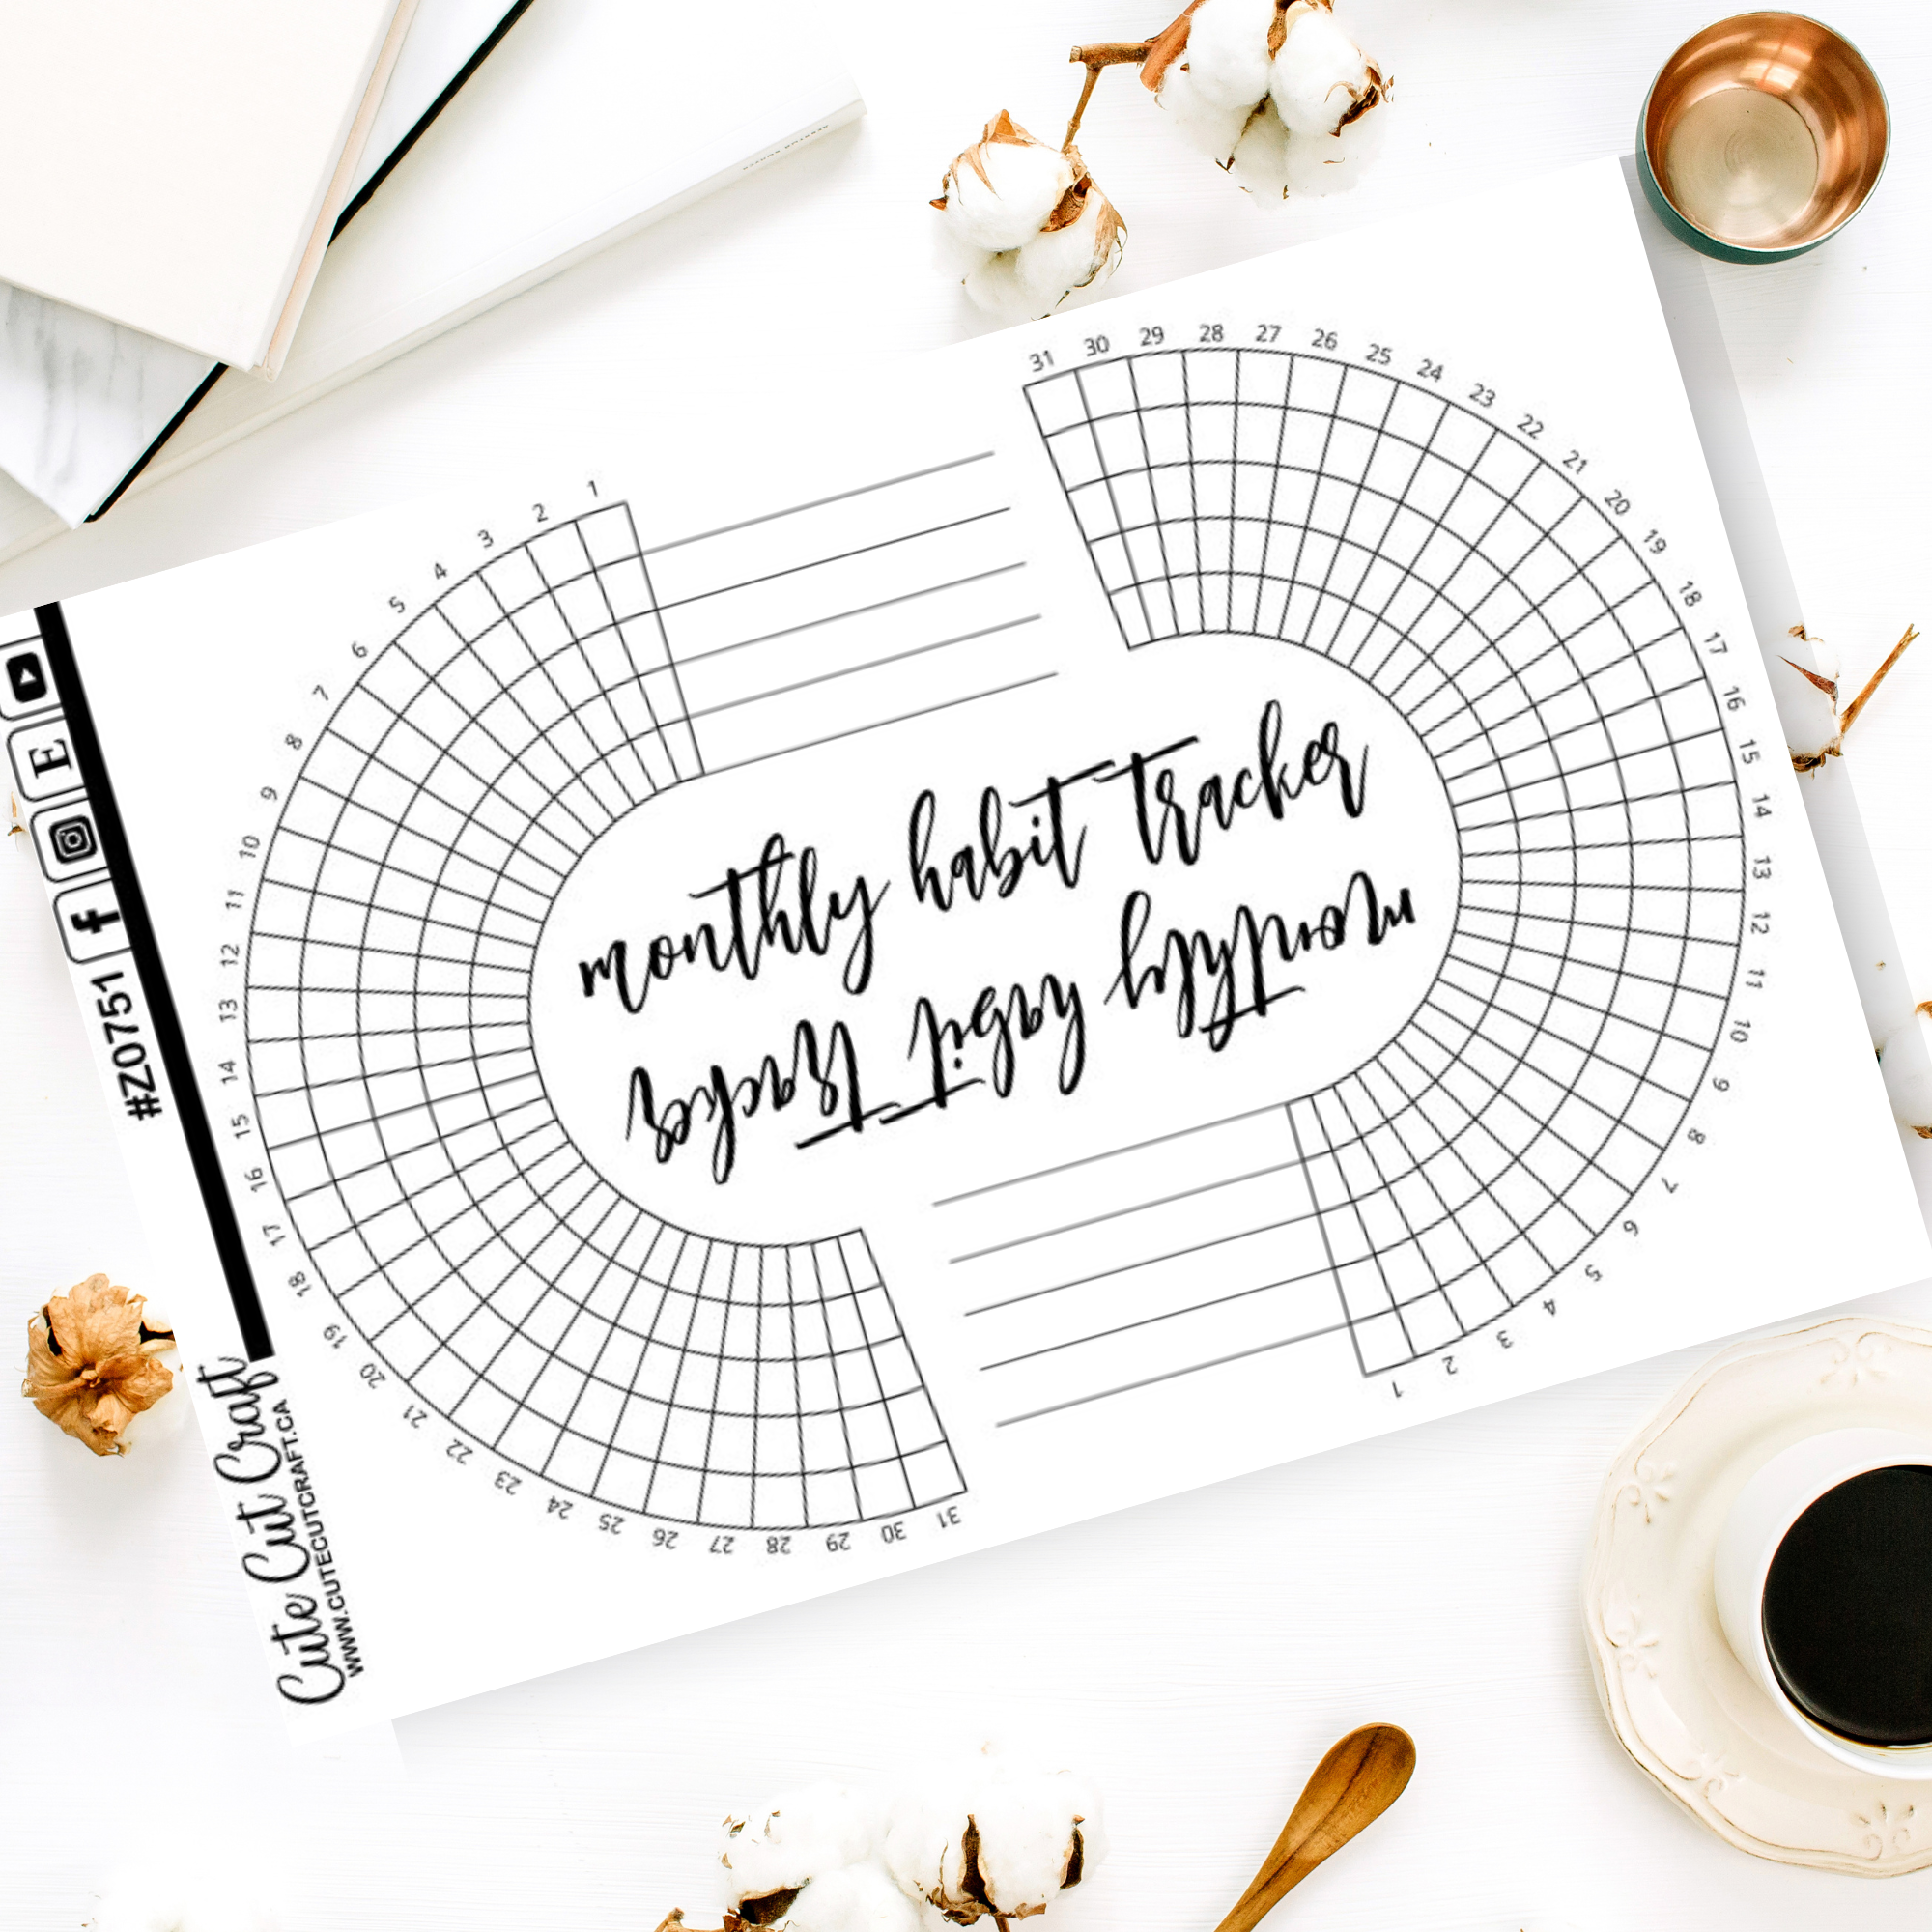 31 30 29 28 27 26 25 24 23 22 21 20 19 18 17 16 15 14 13 12 11 10 9 8 7 6 5 4 3 2 1
1 2 3 4 5 6 7 8 9 10 11 12 13 14 15 16 17 18 19 20 21 22 23 24 25 26 27 28 29 30 31
monthly habit tracker
monthly habit tracker
E
f
#Z0751
Cute Cut Craft
WWW.CUTECUTCRAFT.CA